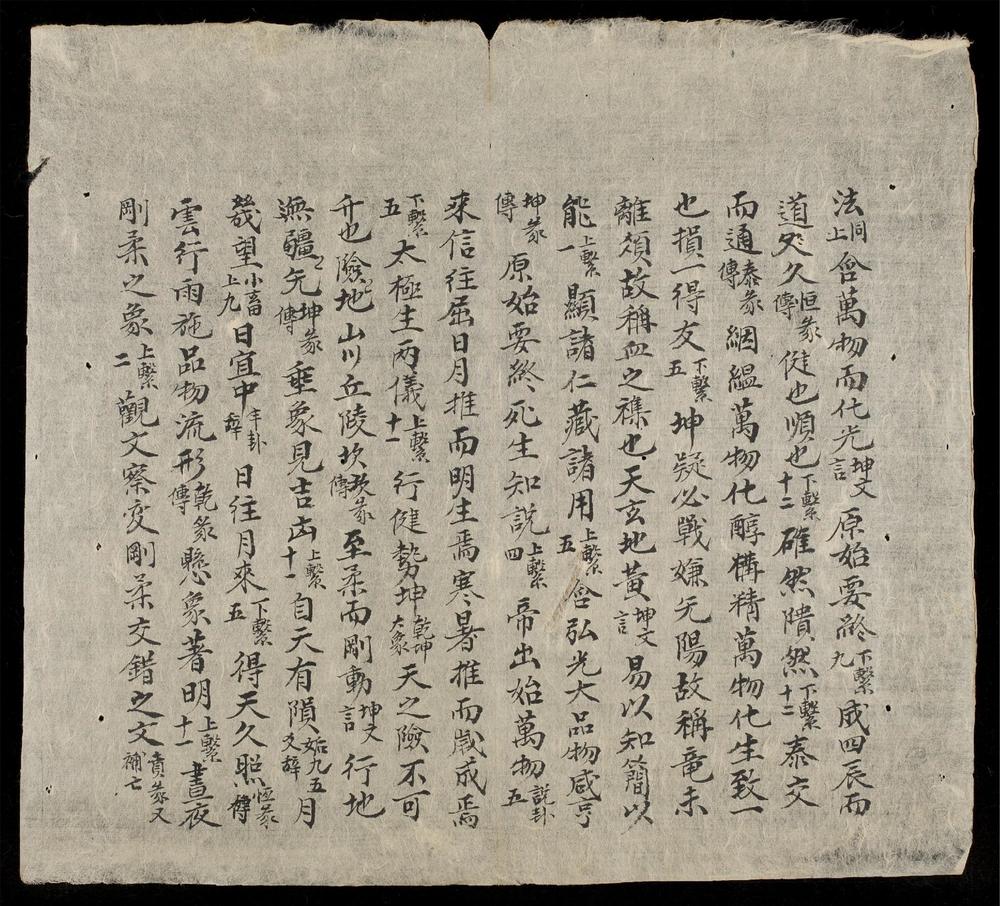 法同上含萬物而化光坤文言原始要終下繫九成四辰而
道久恒彖傳健也順也下繫十二確然隤然下繫十二泰交
而通泰彖傳絪縕萬物化醇構精萬物化生致一
也損一得友下繫五坤疑必戰嫌无陽故稱竜未
離類故稱血之襍也天玄地黃坤文言易以知簡以
能上繫一顯諸仁藏諸用上繫五含弘光大品物咸亨
坤彖傳原始要終死生知說上繫四帝出始萬物說卦五
來信往屈日月推而明生焉寒暑推而歲成焉
下繫五太極生兩儀上繫十一行健勢坤乾坤大象天之險不可
升也險地山川丘陵坎坎彖傳至柔而剛動坤文言行地
無疆无坤彖傳垂象見吉凶上繫十一自天有隕姤九五爻辭月
幾望小畜上九日宜中丰卦辭日往月來下繫五得天久照恒彖傳
雲行雨施品物流形乾彖傳懸象著明上繫十一晝夜
剛柔之象上繫二觀文察変剛柔交錯之文賁彖又補七